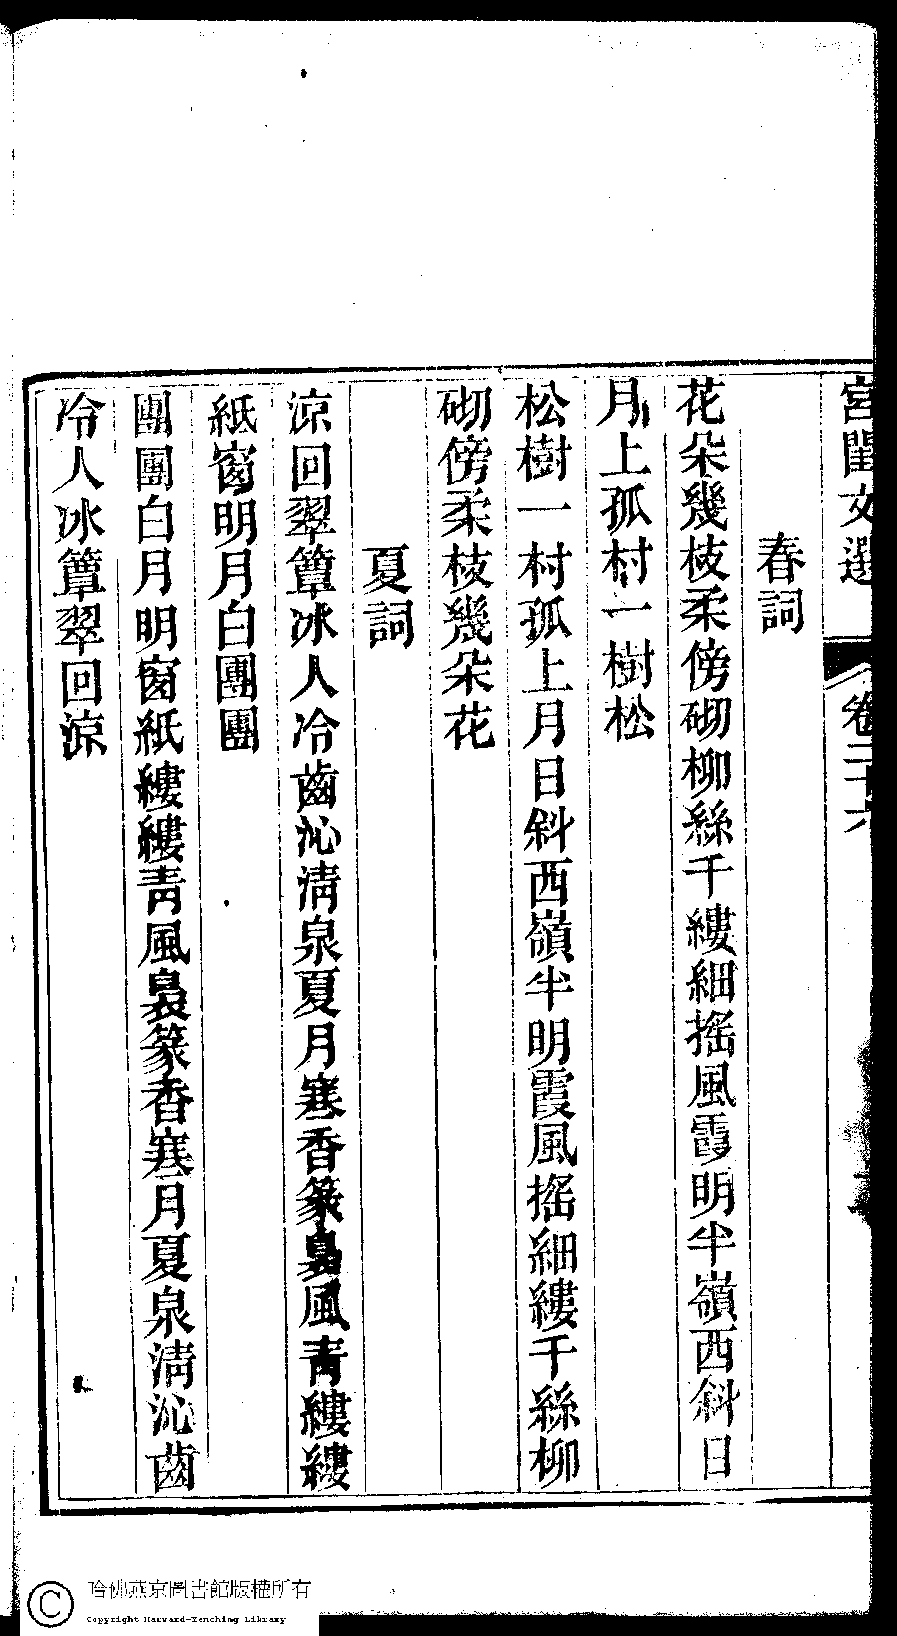 宮閨文選 卷二十六
春詞
花朵幾枝柔傍砌柳絲千縷細搖風霞明半嶺西斜日
月上孤村一樹松
松樹一村孤上月日斜西嶺半明霞風搖細縷千絲柳
砌傍柔枝幾朵花
夏詞
涼回翠簟冰人冷齒沁清泉夏月寒香篆裊風青縷縷
紙窗明月白團團
團團白月明窗紙縷縷青風裊篆香寒月夏泉清沁齒
冷人冰簟翠回涼
哈佛燕京圖書館版權所有
Copyright Harvard-Yenching Library